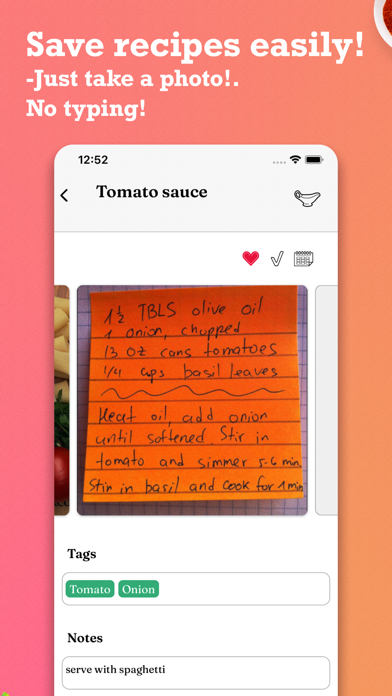 Save recipes easily!
-Just take a photo!.
No typing!
12:52
Tomato sauce
1 1/2 TBLS olive oil
1 onion, chopped
13 oz cans tomatoes
1/4 cups basil leaves
Heat oil, add onion
until softened. Stir in
tomato and simmer 5-6 min.
Stir in basil and cook for 1 min
Tags
Tomato Onion
Notes
serve with spaghetti